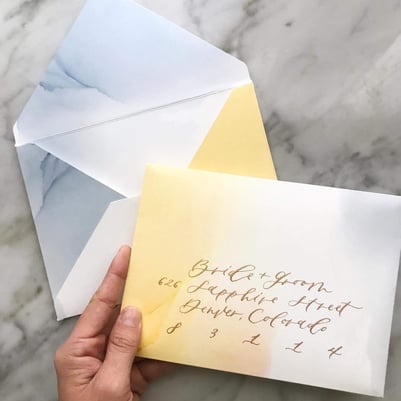 Bride + Groom
626 Sapphire Street
Denver, Colorado
8 3 1 1 4